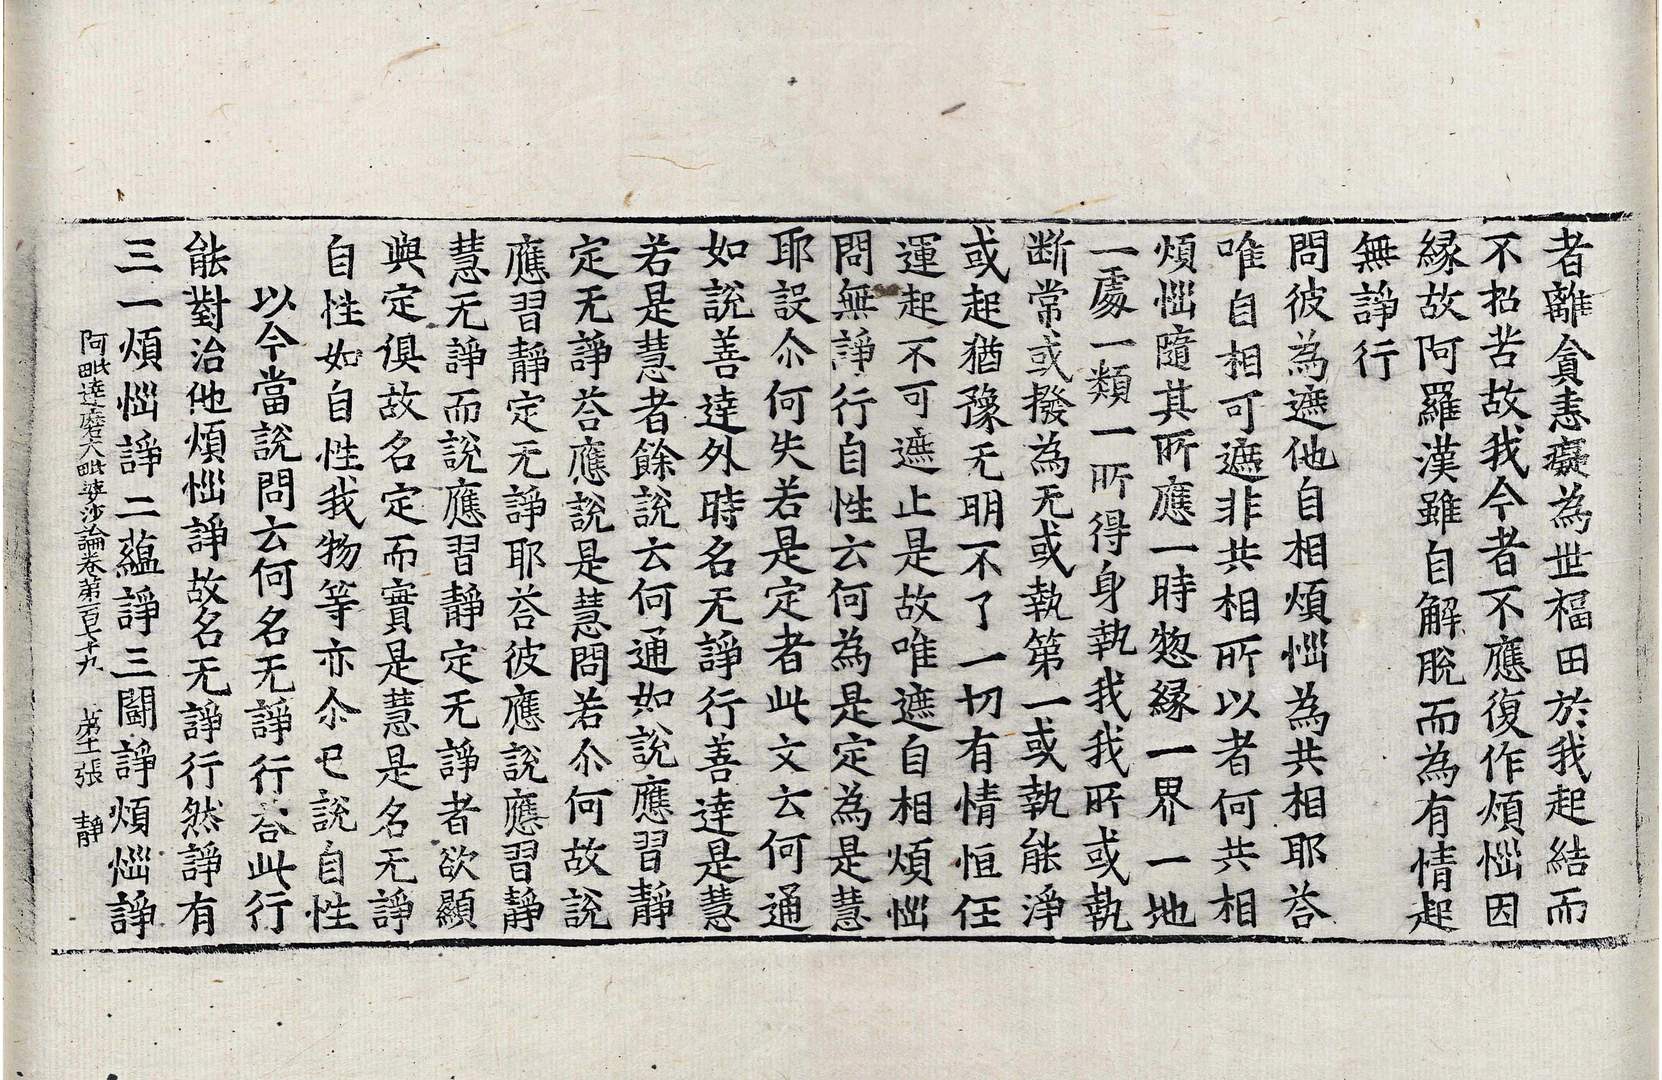 者離貪恚癡為世福田於我起結而
不招苦故我今者不應復作煩惱因
縁故阿羅漢雖自解脫而為有情起
無諍行
問彼為遮他自相煩惱為共相耶荅
唯自相可遮非共相所以者何共相
煩惱隨其所應一時惣縁一界一地
一處一類一所得身執我我所或執
断常或撥為无或執第一或執能淨
或起猶豫无明不了一切有情恒任
運起不可遮止是故唯遮自相煩惱
問無諍行自性云何為是定為是慧
耶設尒何失若是定者此文云何通
如說善達外時名无諍行善達是慧
若是慧者餘說云何通如說應習靜
定无諍荅應說是慧問若尒何故說
應習靜定无諍耶荅彼應說應習靜
慧无諍而說應習靜定无諍者欲顯
與定俱故名定而實是慧是名无諍
自性如自性我物等亦尒已說自性
以今當說問云何名无諍行荅此行
能對治他煩惱諍故名无諍行然諍有
三一煩惱諍二蘊諍三鬪諍煩惱諍
阿毗達磨大毗婆沙論卷第一百七十九 第十一張 靜